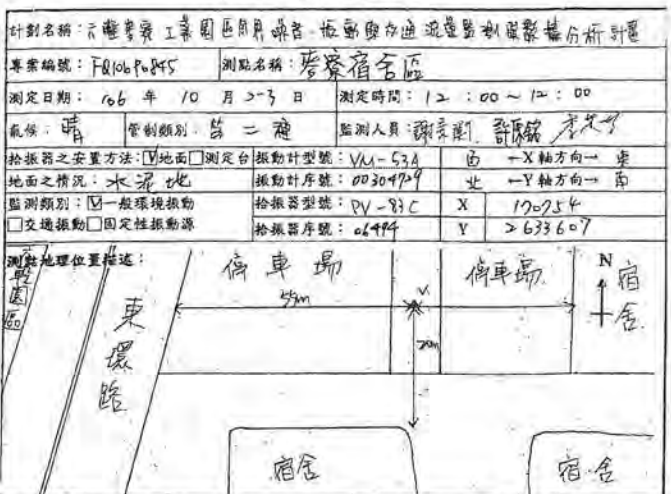 計劃名稱：六輕麥寮工業園區附近噪音、振動與交通流量監測與數據分析計畫
專案編號：FQ106P0845 測點名稱：麥寮宿舍區
測定日期：106 年 10 月 2-3 日 測定時間：12：00～12：00
氣候：晴 管制類別：第二種 監測人員：
拾振器之安置方法：☑地面□測定台 振動計型號：VM-53A 西 ←X 軸方向→ 東
地面之情況：水泥地 振動計序號：00304729 北 ←Y 軸方向→ 南
監測類別：☑一般環境振動 拾振器型號：PV-83C X 170754
□交通振動□固定性振動源 拾振器序號：06494 Y 2633607
測點地理位置描述：
停車場 停車場 N 宿舍
園區
55m V
東環路
20m
宿舍 宿舍